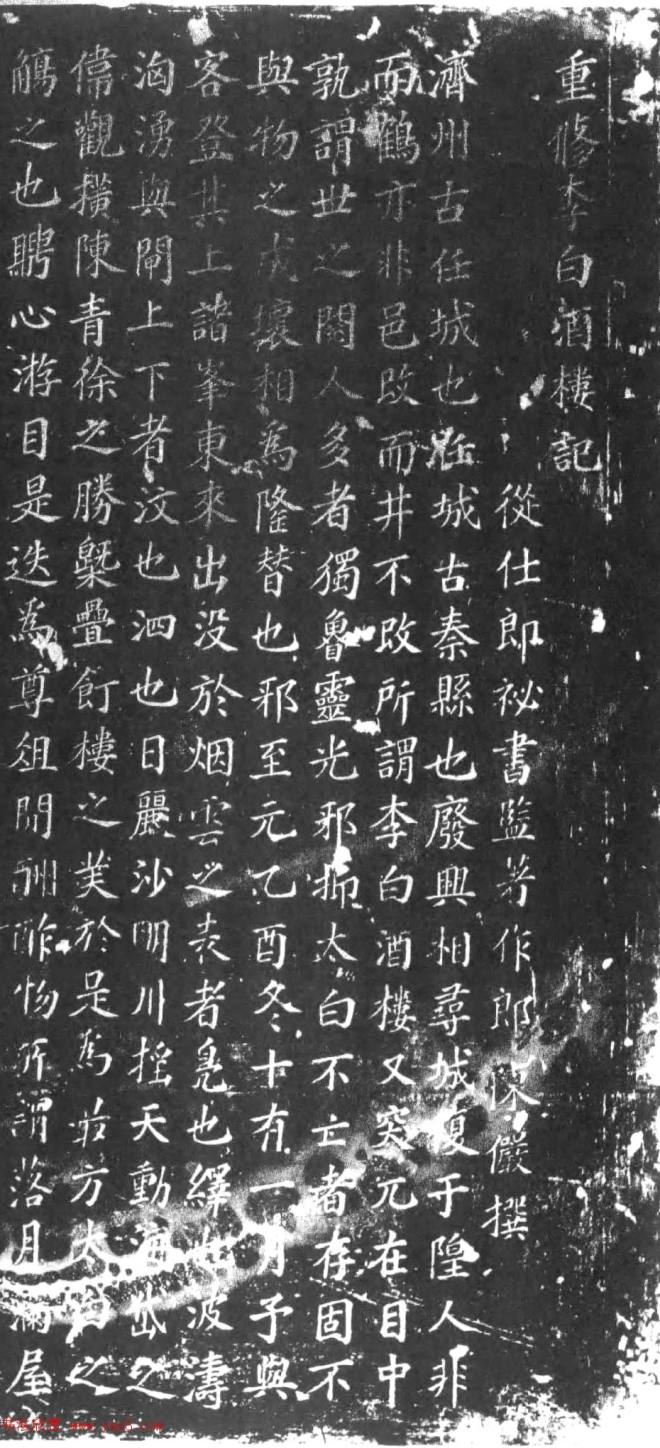 重修李白酒樓記
從仕郎祕書監著作郎陳儼撰
濟州古任城也任城古秦縣也廢興相尋城復于隍人非
而鶴亦非邑改而井不改所謂李白酒樓又突兀在目中
孰謂世之閱人多者獨魯靈光邪抑太白不亡者存固不
與物之成壞相爲隆替也邪至元乙酉冬十有一月予與
客登其上諸峯東來出没於烟雲之表者鳧也繹也波濤
洶湧與閘上下者汶也泗也日麗沙明川摇天動海岱之
偉觀橫陳青徐之勝槩疊飣樓之美於是爲最方太白之
觴之也騁心游目是迭爲尊俎間酬酢物所謂落月滿屋